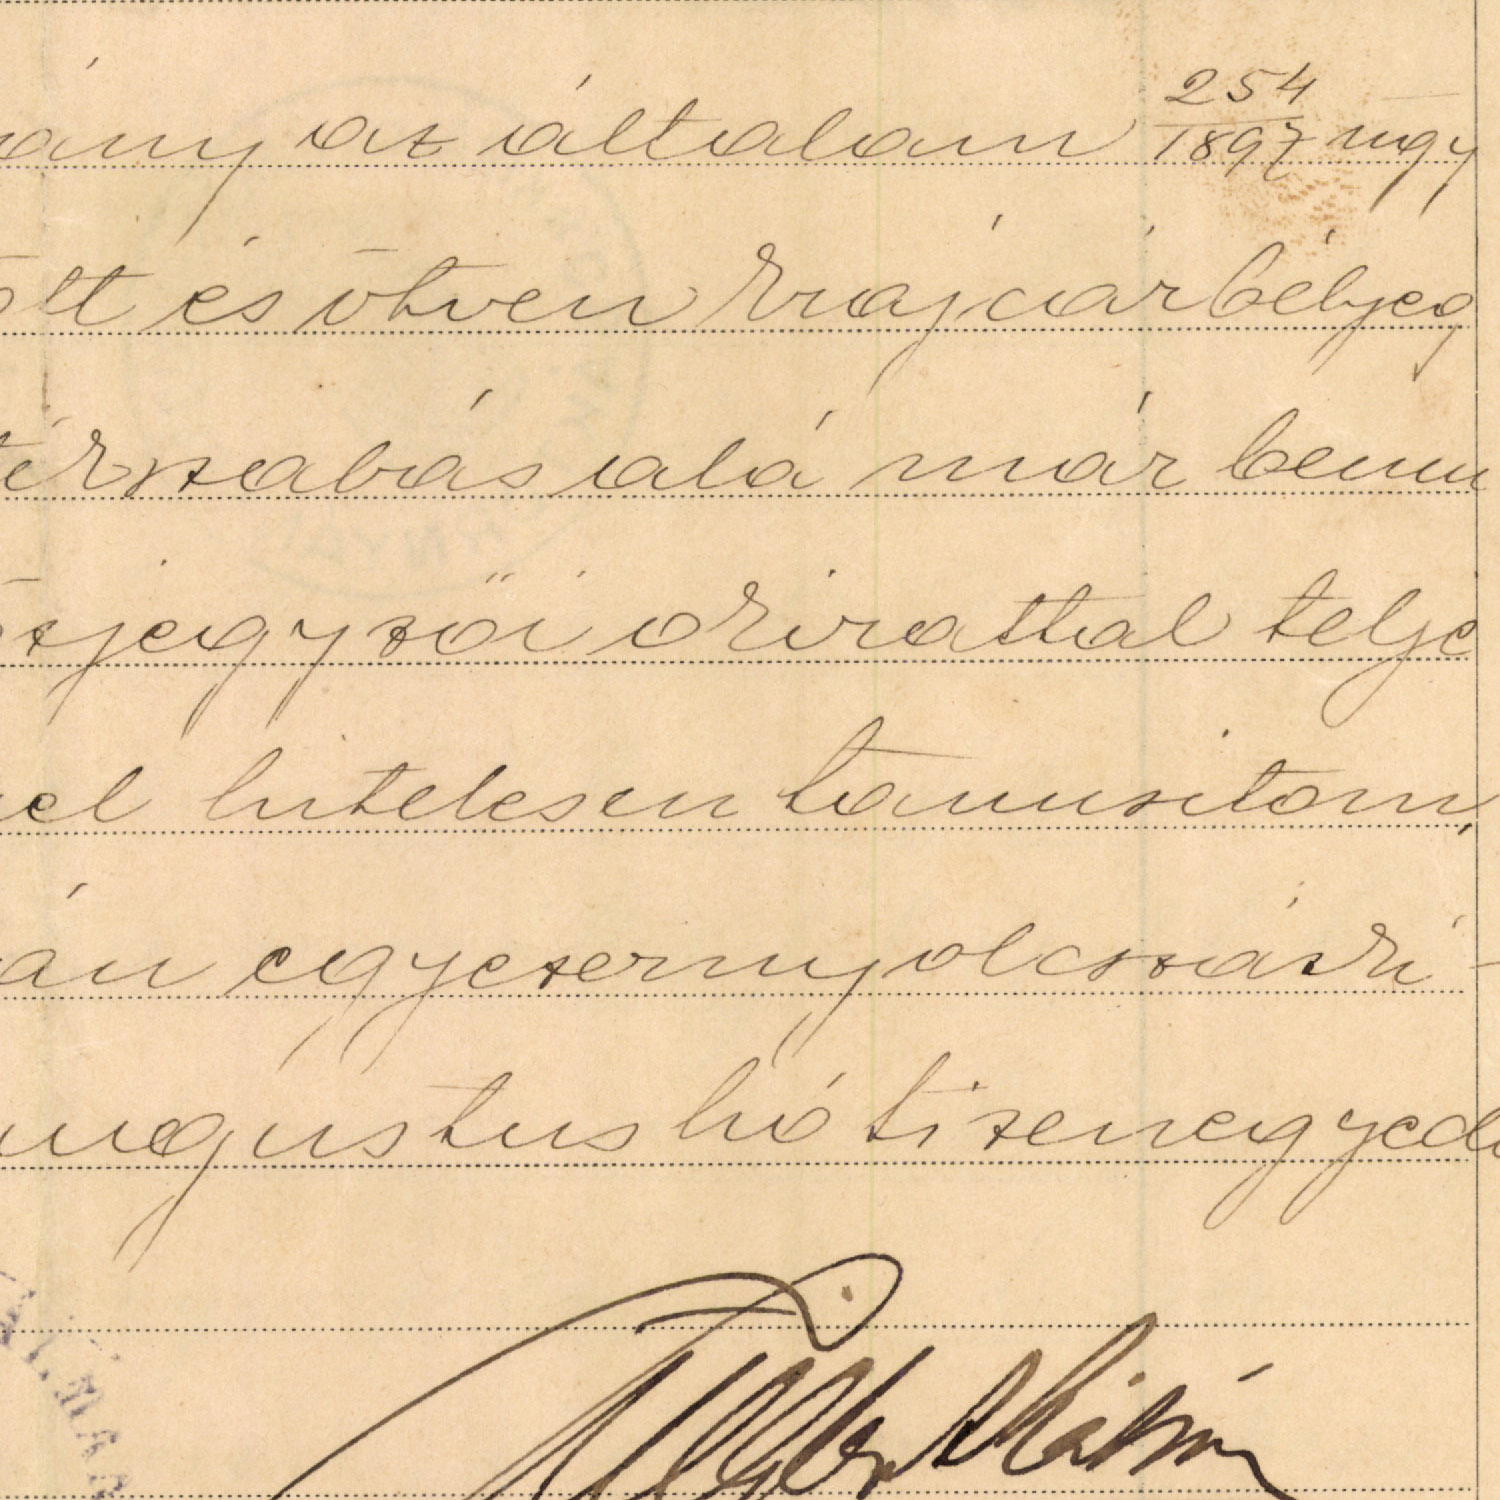 ány az általam 254/1897 ügy
ölt és ötven krajcár bélyeg
térszabás alá már benn
özjegyzői okirattal telje
el hitelesen tanusitom,
án egyezernyolcszázki-
augustus hó tizenegyedi